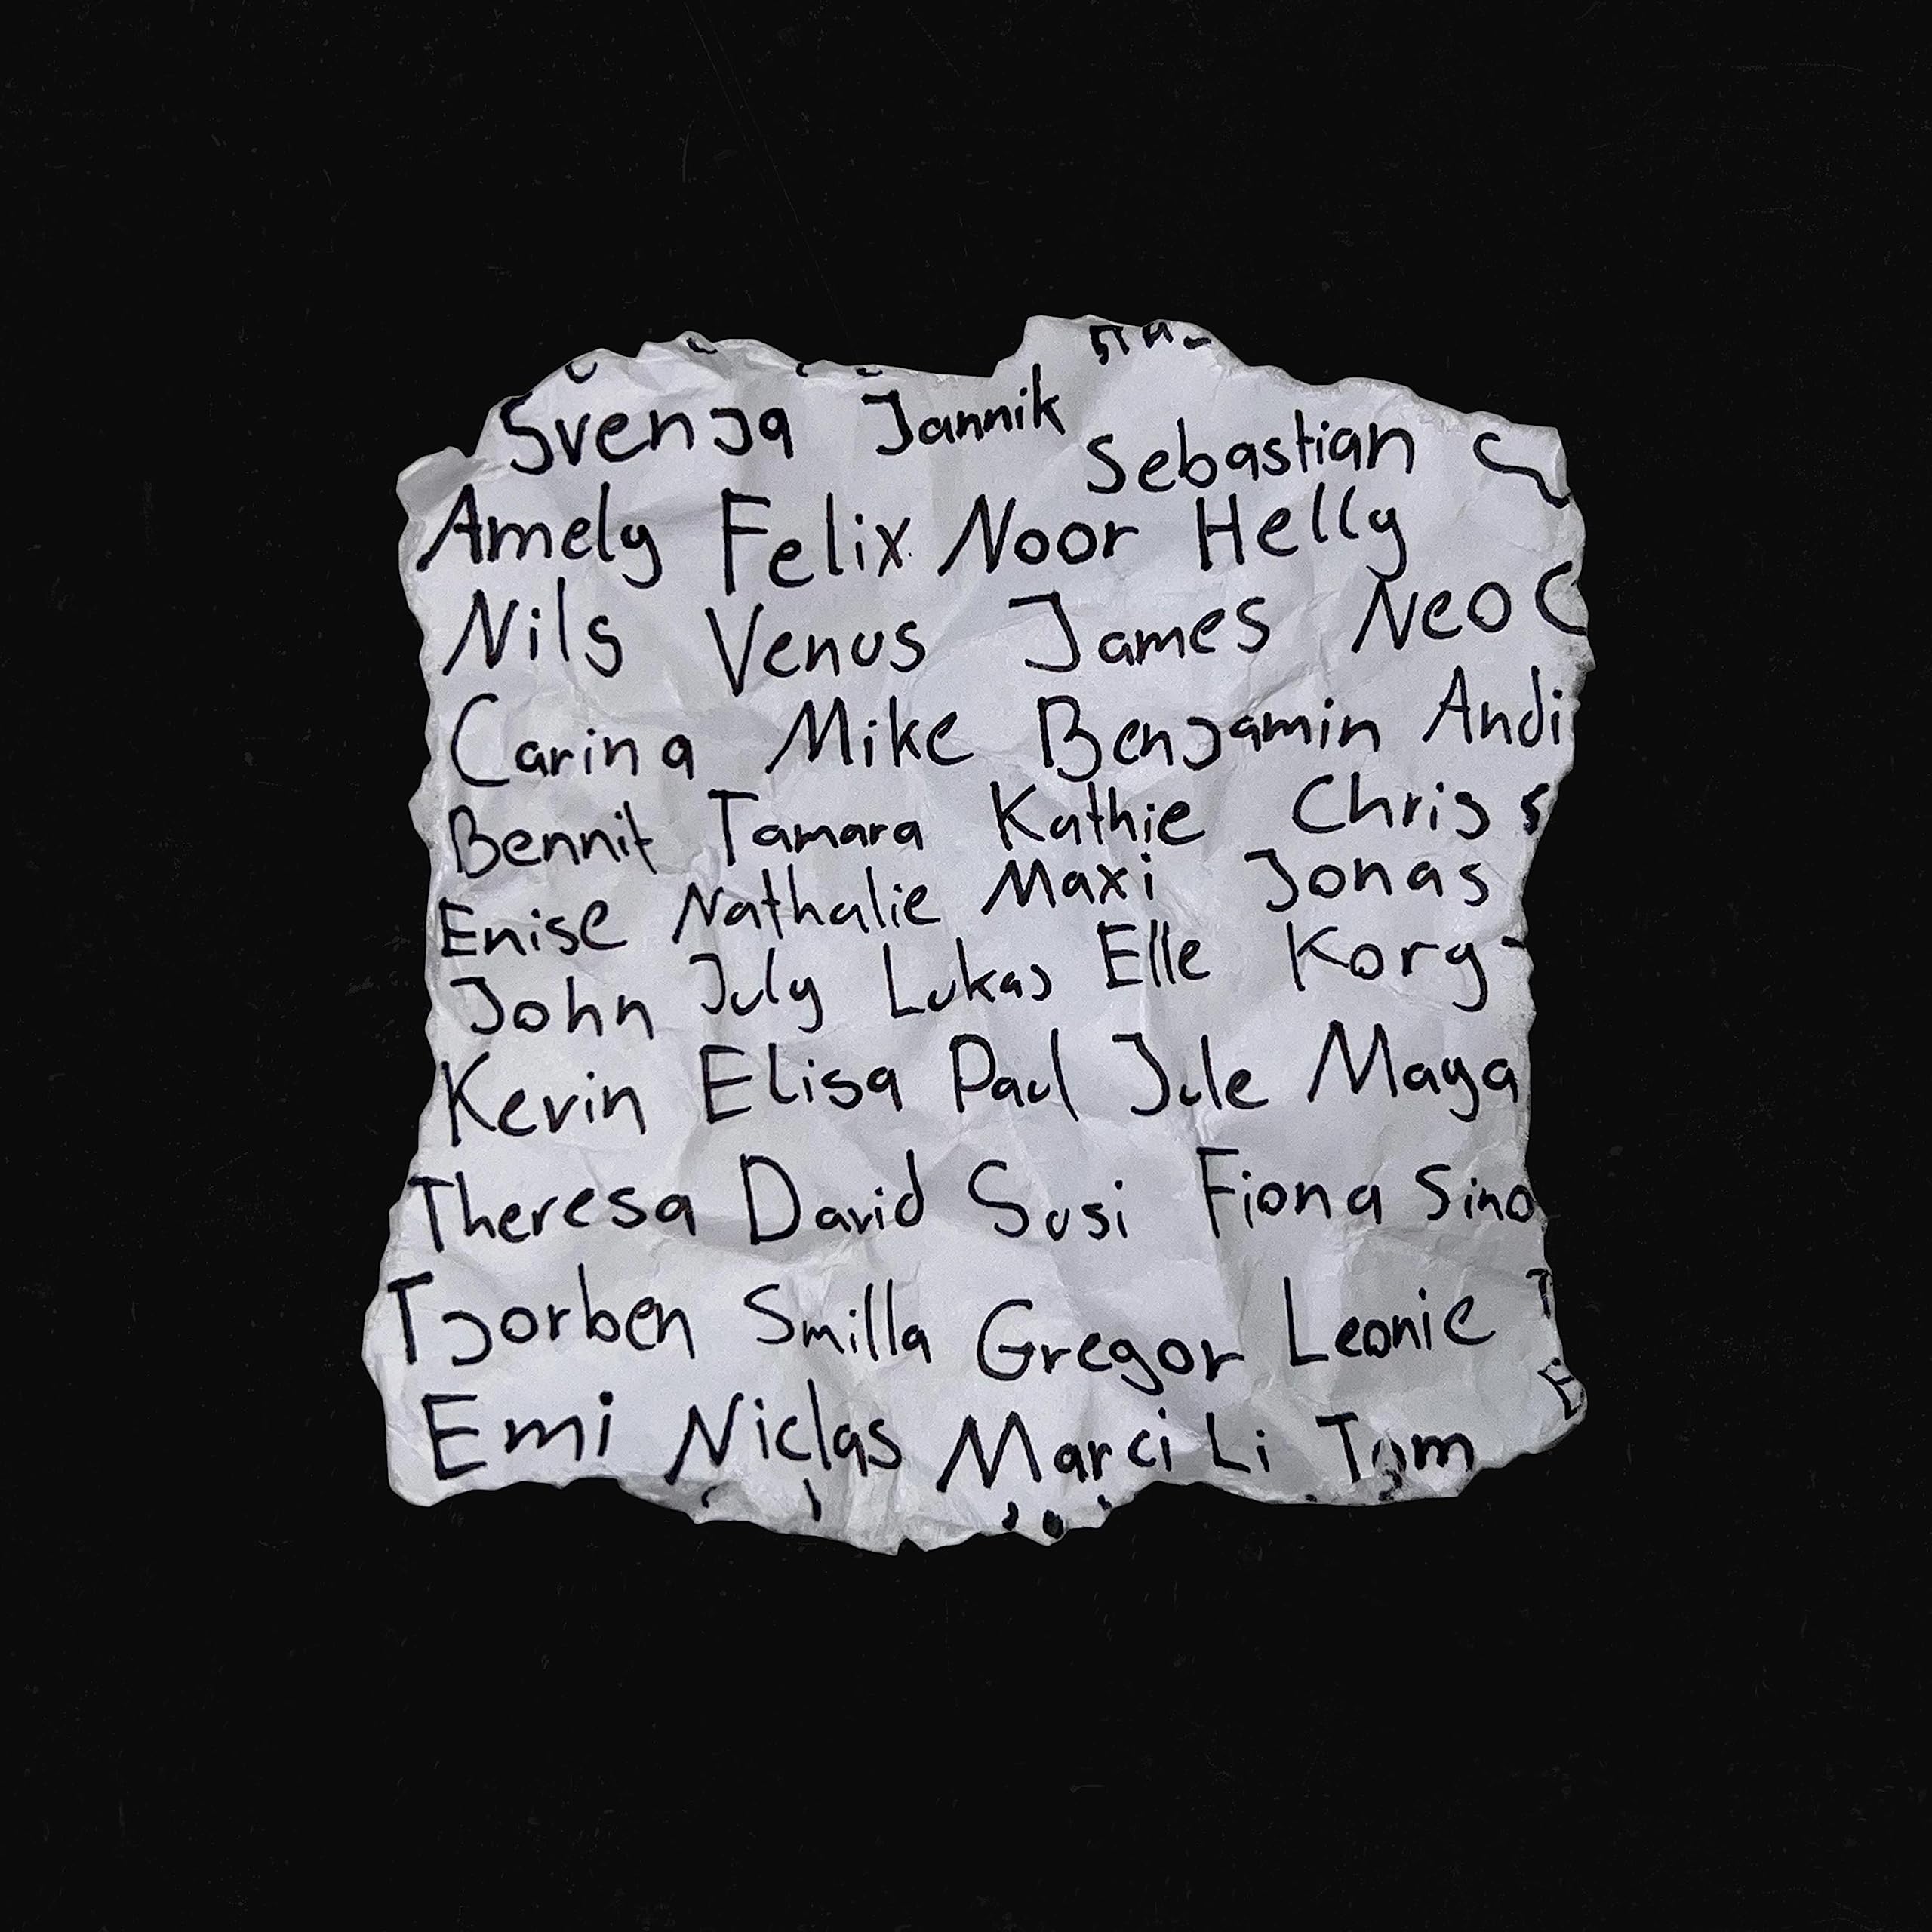 Svenja Jannik Sebastian
Amely Felix Noor Helly
Nils Venus James Neo
Carina Mike Benjamin Andi
Bennit Tamara Kathie Chris
Enise Nathalie Maxi Jonas
John July Lukas Elle Korg
Kevin Elisa Paul Jule Maya
Theresa David Susi Fiona Sino
Tjorben Smilla Gregor Leonie
Emi Niclas Marci Li Tom